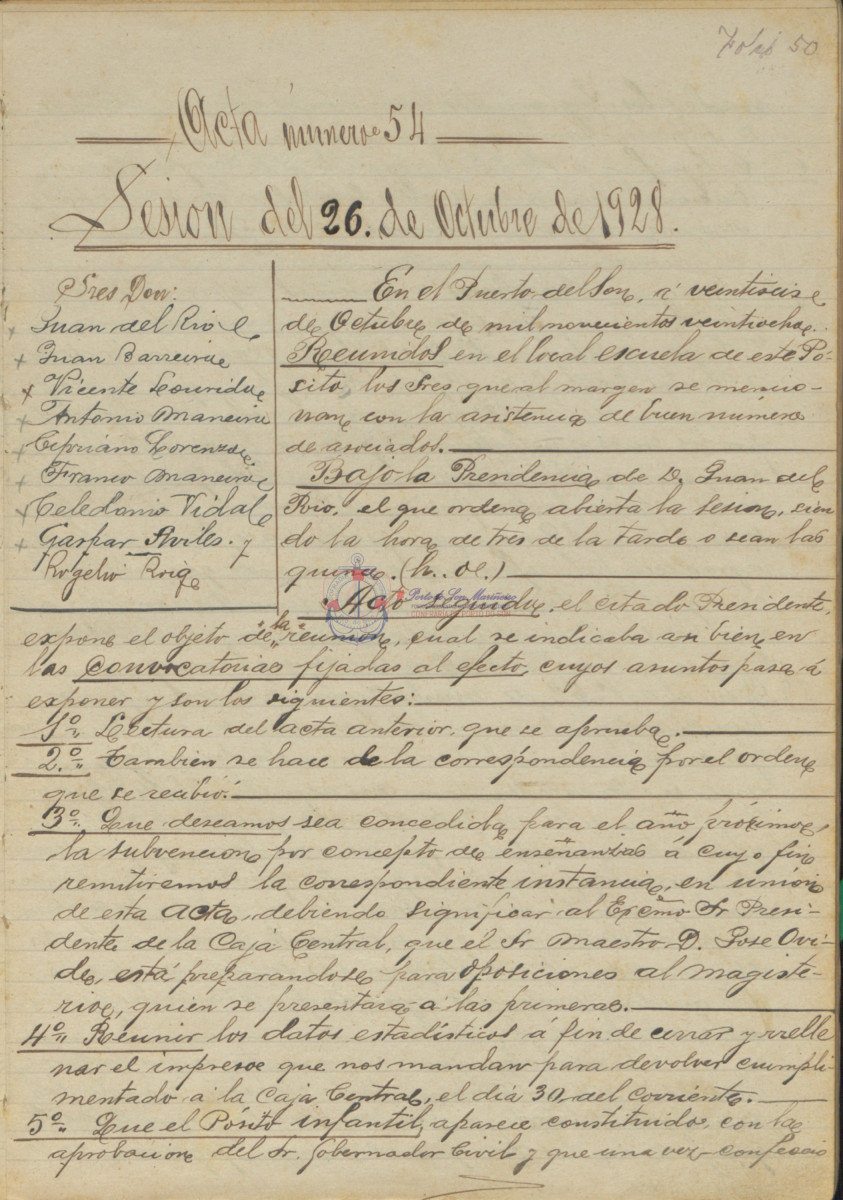 Folio 50
Acta número 54
Sesion del 26. de Octubre de 1928.
Sres Don:
Juan del Rio
Juan Barreiro
Vicente Louridu
Antonio Maneiro
Cipriano Lorenzo
Franco Maneiro
Celedonio Vidal
Gaspar Aviles. y
Rogelio Roig
En el Puerto del Son, á veintiseis
de Octubre de mil novecientos veintiocho.
Reunidos en el local escuela de este Pó-
sito, los Sres que al margen se mencio-
nan con la asistencia de buen número
de asociados.
Bajo la Presidencia de D. Juan del
Rio, el que ordena abierta la sesion, sien
do la hora de tres de la tarde o sean las
quince. (h. oc.)
Acto seguido, el citado Presidente,
expone el objeto de "la" reunion, cual se indicaba asi bien en
las convocatorias fijadas al efecto, cuyos asuntos pasa á
exponer y son los siguientes:
1º" Lectura del acta anterior, que se aprueba.
2º" Tambien se hace de la correspondencia por el orden
que se recibió.
3º" Que deseamos sea concedida para el año próximo,
la subvencion por concepto de enseñanzas á cuyo fin
remitiremos la correspondiente instancia, en unión
de esta acta, debiendo significar al Excmo Sr Presi-
dente de la Caja Central, que el Sr Maestro D. Jose Ovi-
do, está preparandose para oposiciones al magiste-
rio, quien se presentará a las primeras.
4º" Reunir los datos estadísticos á fin de cerrar y rrelle
nar el impreso que nos mandan para devolver cumpli-
mentado á la Caja Central, el dia 30 del corriente.
5º" Que el Pósito infantil, aparece constituido, con la
aprobacion del Sr. Gobernador Civil y que una vez confeccio